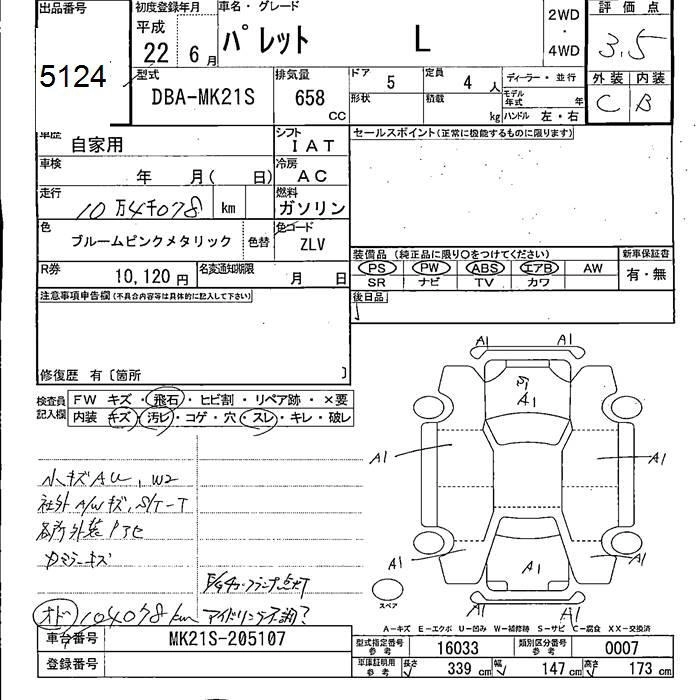 出品番号 初度登録年月 車名・グレード 2WD ・ 4WD 評価点
5124 平成 22 6月 パレット L 3.5
型式 排気量 ドア 5 定員 4人 ディーラー・並行 外装 内装
DBA-MK21S 658 CC 形状 積載 kg モデル年式 年 ハンドル 左・右 C B
車歴 自家用 シフト IAT セールスポイント(正常に機能するものに限ります)
車検 年 月( 日) 冷房 AC
走行 10万4千078 km 燃料 ガソリン
色 ブルームピンクメタリック 色替 色コード ZLV
装備品 (純正品に限り○をつけてください) 新車保証書
R券 10,120円 名変通知期限 月 日 PS PW ABS エアB AW 有・無
SR ナビ TV カワ
注意事項申告欄(不具合内容等は具体的に記入して下さい) 後日品
修復歴 有〔箇所 〕
検査員記入欄 FW キズ・飛石・ヒビ割・リペア跡・×要
内装 キズ・汚れ・コゲ・穴・スレ・キレ・破レ
A1 A1
S1
A1
A1 A1
小キズAU, W2
社外A/Wキズ, S/T-T
各所外装
ミラーキズ
A1 A1 A1
スペア
A1 A1
オド 104078km アイドリング不調?
A-キズ E-エクボ U-凹み W-補修跡 S-サビ C-腐食 XX-交換済
車台番号 MK21S-205107 型式指定番号 参考 16033 類別区分番号 参考 0007
登録番号 車庫証明用 参考 長さ 339 cm 幅 147 cm 高さ 173 cm